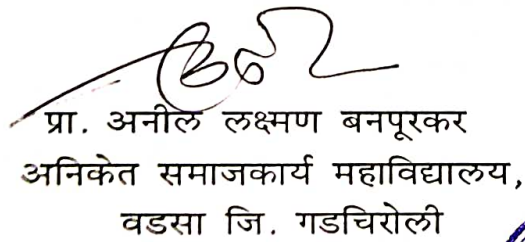 प्रा. अनील लक्ष्मण बनपूरकर
अनिकेत समाजकार्य महाविद्यालय,
वडसा जि. गडचिरोली